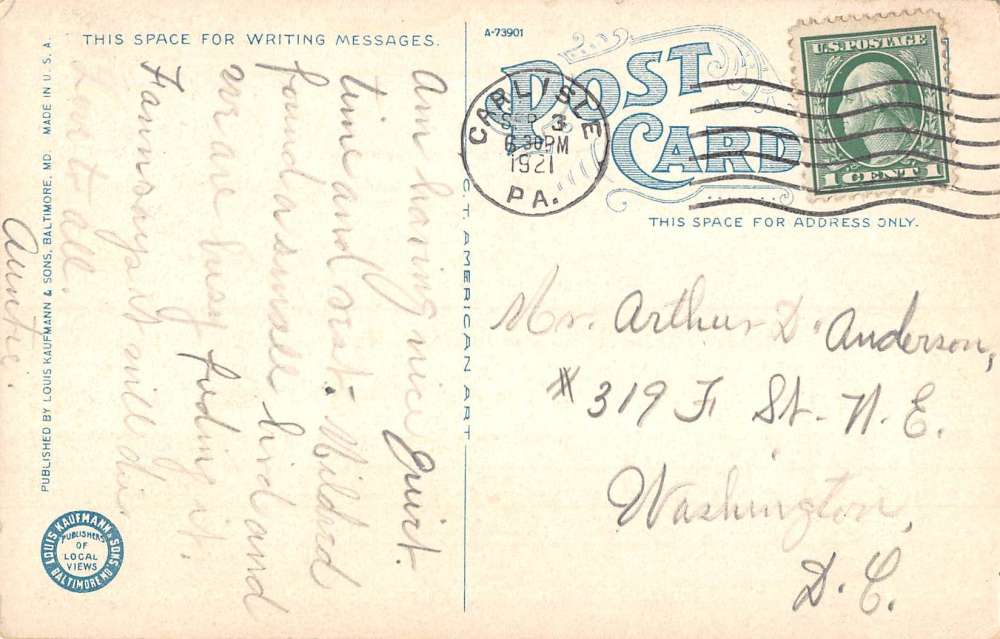 THIS SPACE FOR WRITING MESSAGES.
Am having nice quirt
time and rest. Mildred
found a small bird and
we are busy fuding it.
says it will die
Love to all.
Auntie.
PUBLISHED BY LOUIS KAUFMANN & SONS, BALTIMORE, MD. MADE IN U.S.A.
LOUIS KAUFMANN & SONS
BALTIMORE MD.
PUBLISHERS
OF
LOCAL
VIEWS
C.T. AMERICAN ART
A-73901
POST
CARD
CARLISLE
SEP 3
6 30PM
1921
PA.
U.S. POSTAGE
1 CENT 1
THIS SPACE FOR ADDRESS ONLY.
Mr. Arthur D. Anderson,
#319 F St. N.E.
Washington,
D.C.